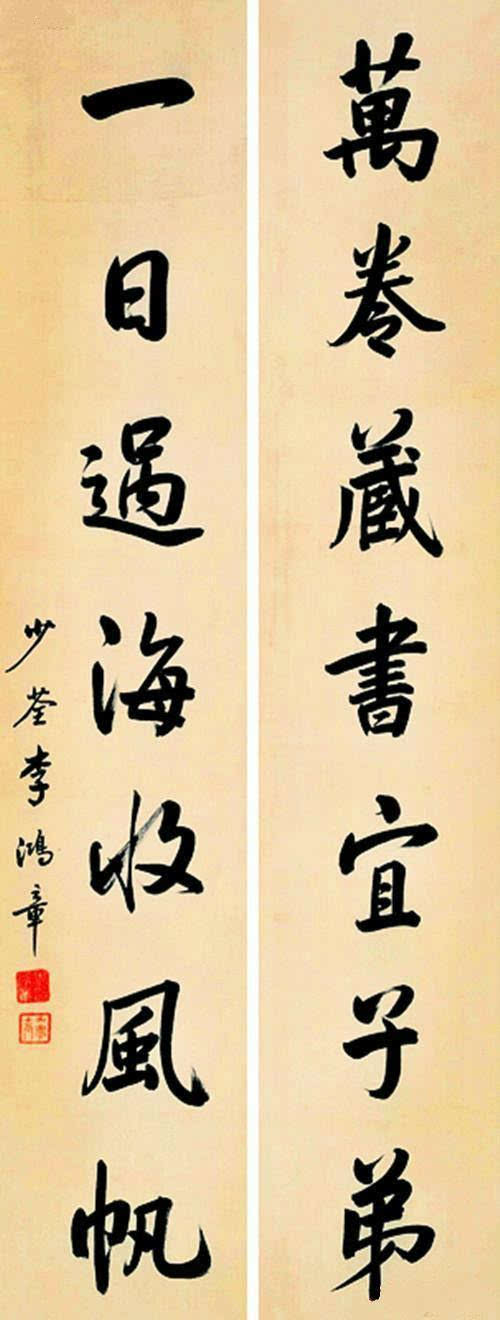 萬卷藏書宜子弟
一日過海收風帆
少荃李鴻章